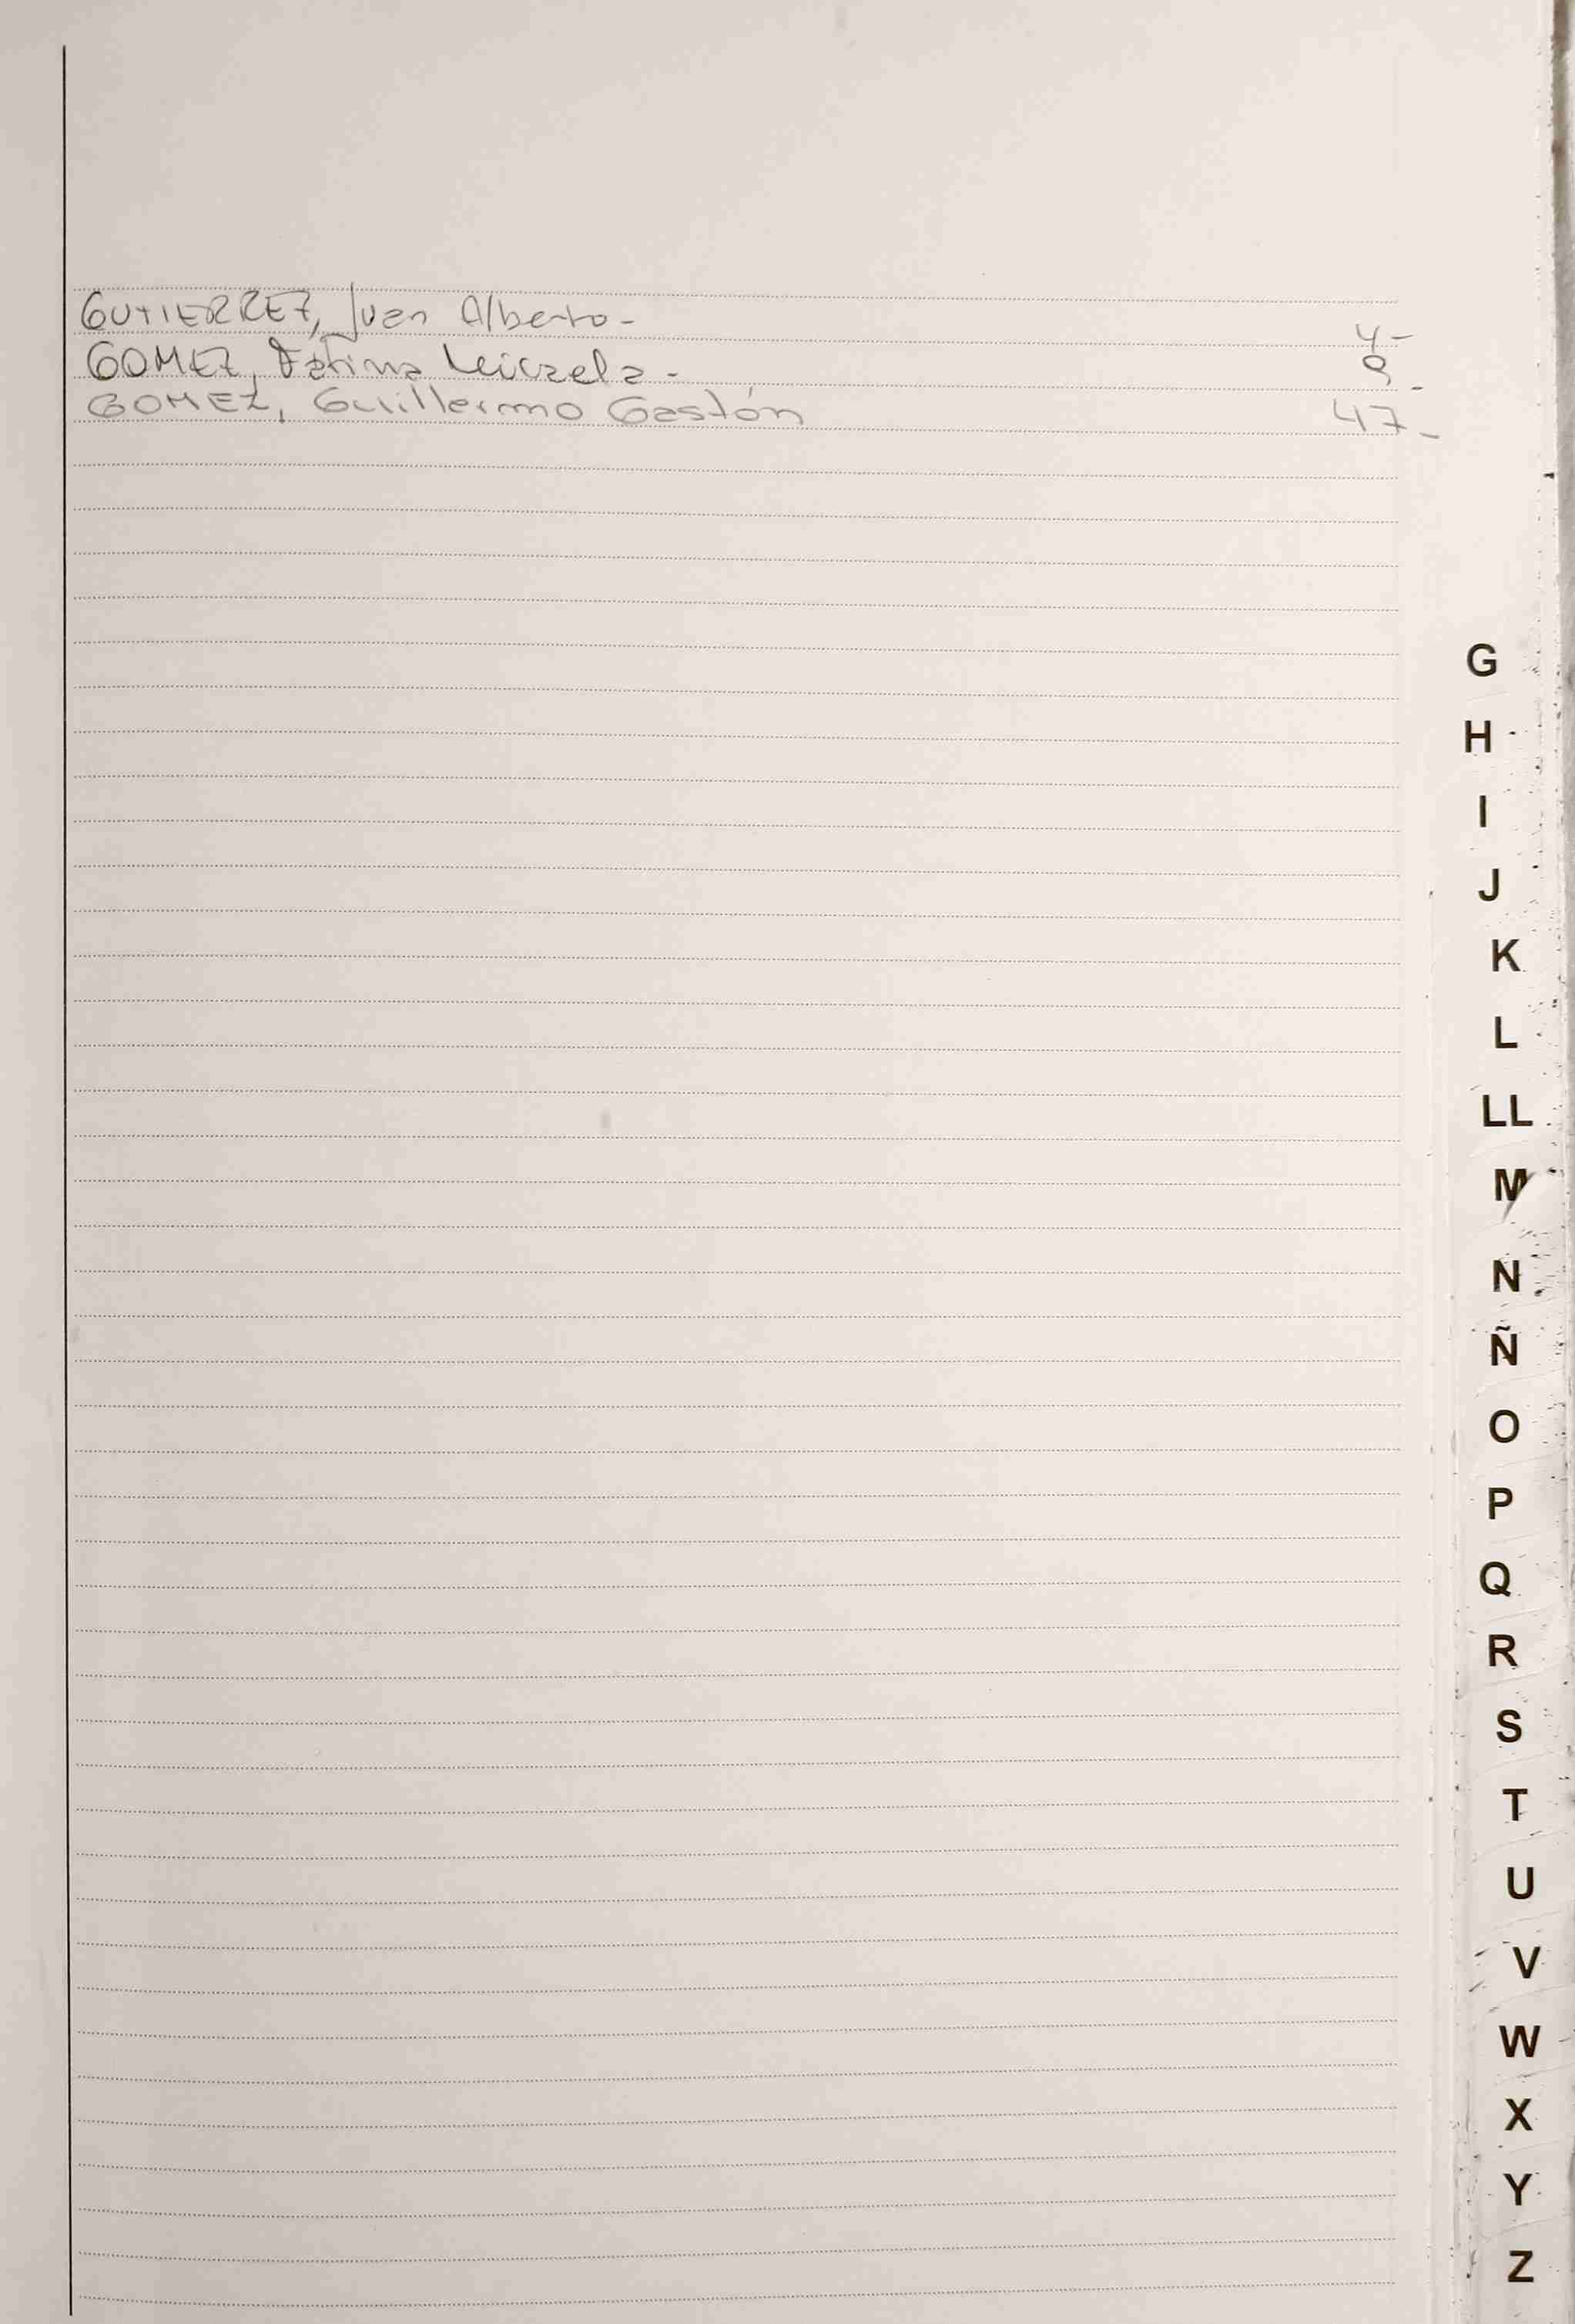 GUTIERREZ, Juan Alberto - 4 -
GOMEZ, Fátima Micaela - 9 -
GOMEZ, Guillermo Gastón 47 -
G
H
I
J
K
L
LL
M
N
Ñ
O
P
Q
R
S
T
U
V
W
X
Y
Z